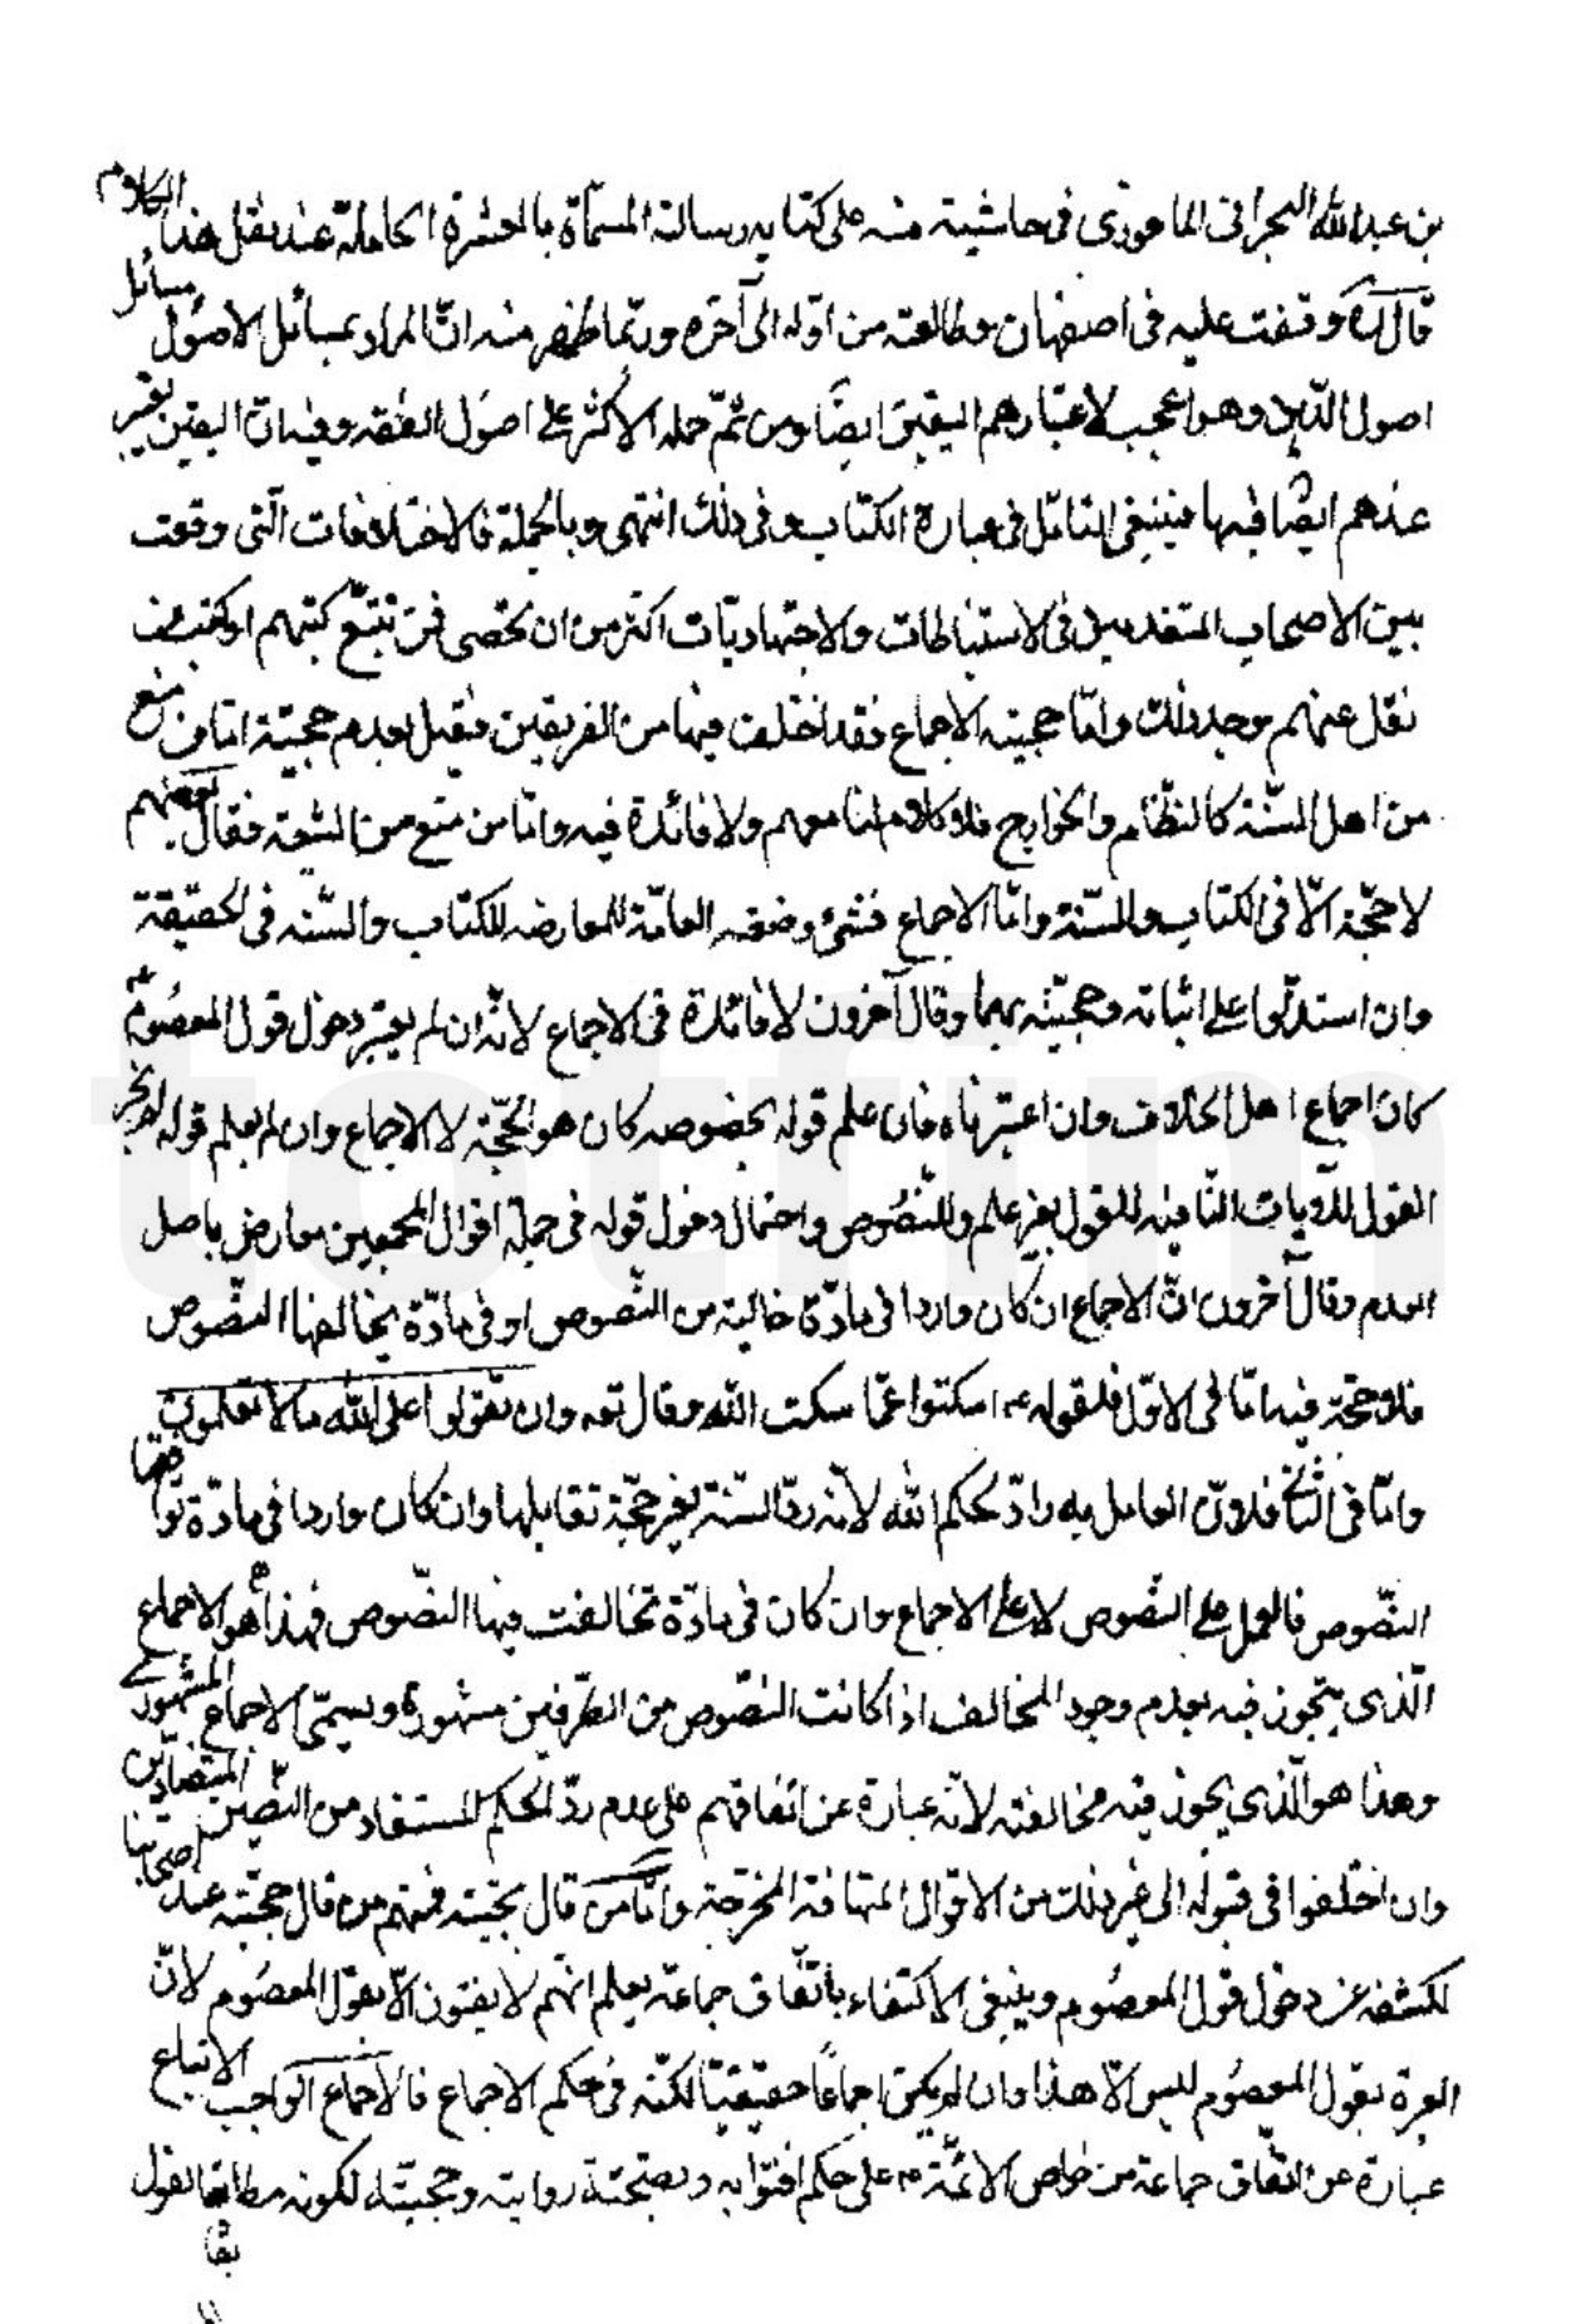 بن عبدالله البحرانى الماحوزى فى حاشية منه على كتابه رسالته المسماة بالعشرة الكاملة عند نقل هذا الكلام
قال ره وقفت عليه فى اصفهان وطالعته من اوّله الى آخره وربّما ظهر منه انّ المراد بمسائل الاصُول مسائل
اصول الدّين وهو اعجب لاعتبارهم اليقين ايضًا ومن ثمّ حمله الاكثر على اصول الفقه وفيه انّ اليقين يعتبر
عندهم ايضًا فيها فينبغى التامّل فى عبارة الكتاب وفى ذلك انتهى وبالجملة فالاختلافات الّتى وقعت
بين الاصحاب المتقدمين فى الاستنباطات والاجتهاديّات اكثر من ان تحصى فمن تتبّع كتبهم او كتب من
نقل عنهم وجد ذلك وامّا حجيته الاجماع فقد اختلف فيها من الفريقين فقيل بعدم حجيّته امّا من منع
من اهل السّنة كالنظّام والخوارج فلا كلام لنا معهم ولا فائدة فيه وامّا من منع من الشيعة فقال بعضهم
لا حجّة الّا فى الكتاب والسّنة وامّا الاجماع فشئ وضعه العامّة للمعارضه للكتاب والسّنه فى الحقيقة
وان استدلّوا على اثباته وحجيّته بهما وقال آخرون لا فائدة فى الاجماع لانّه ان لم يعتبر دخول قول المعصُوم ع
كان اجماع اهل الخلاف وان اعتبرناه فان علم قوله بخصوصه كان هو الحجّة لا الاجماع وان لم يعلم قوله لم يجز
القول للرّوايات النّافيه للقول بغير علم وللنّصُوص واحتمال دخول قوله فى جملة اقوال المجمعين معارض باصل
العدم وقال آخرون انّ الاجماع ان كان واردا فى مادّة خالية من النّصوص او فى مادّة يخالفها النّصوص
فلا حجّة فيه امّا فى الاوّل فلقوله ع اسكتوا عمّا سكت الله وقال تع وان تقولوا على الله ما لا تعلمون
وامّا فى الثّانى فلانّ العامل به رادّ لحكم الله لانّه ردّ السّنة بغير حجّة تقابلها وان كان واردا فى مادّة توافقها
النّصوص فالعمل على النّصوص لا على الاجماع وان كان فى مادّة تخالفت فيها النّصوص فهذا هو الاجماع
الّذى يتجوز فيه بعدم وجود المخالف اذا كانت النصّوص من الطّرفين مشهورة ويسمّى الاجماع المشهورى
وهذا هو الّذى يجوز فيه مخالفته لانّه عبارة عن اتفاقهم على عدم ردّ الحكم المستفاد من النصّين المتضادّين
وان اختلفوا فى قبوله الى غير ذلك من الاقوال المتهافتة المخرجة وامّا من قال بحجيته فمنهم من قال حجيّته عند اصحابنا
لكشفه عن دخول قول المعصُوم وينبغى الاكتفاء باتّفاق جماعة يعلم انّهم لا يفتون الّا بقول المعصُوم لانّ
العبرة بقول المعصُوم ليس الّا هذا وان لم يكن اجماعًا حقيقيّا لكنّه فى حكم الاجماع فالاجماع الواجب الاتباع
عبارة عن اتّفاق جماعة من خواص الائمّة ع على حكم افتوا به وبصحّة روايته وحجيّته لكونه مطابقا لقول